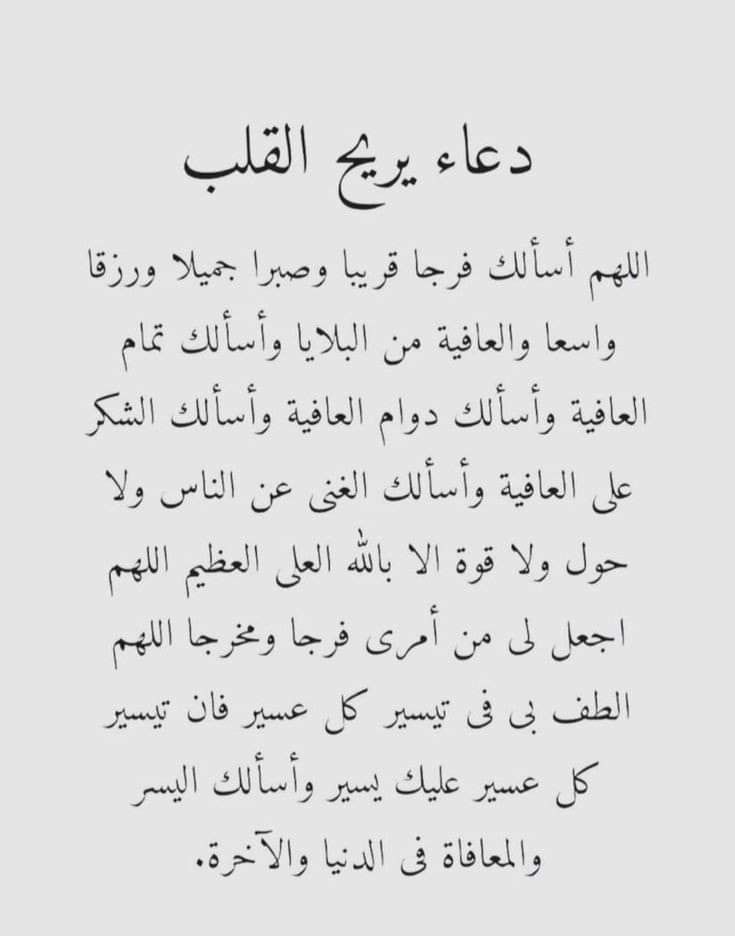 دعاء يريح القلب
اللهم أسألك فرجا قريبا وصبرا جميلا ورزقا
واسعا والعافية من البلايا وأسألك تمام
العافية وأسألك دوام العافية وأسألك الشكر
على العافية وأسألك الغنى عن الناس ولا
حول ولا قوة الا بالله العلى العظيم اللهم
اجعل لى من أمرى فرجا ومخرجا اللهم
الطف بى فى تيسير كل عسير فان تيسير
كل عسير عليك يسير وأسألك اليسر
والمعافاة فى الدنيا والآخرة.